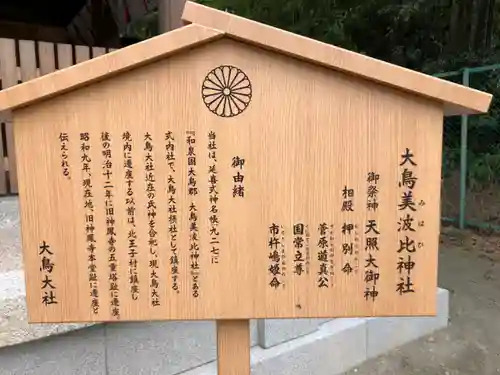 大鳥美波比神社
みはひ
御祭神 天照大御神
相殿 押別命
菅原道真公
国常立尊
市杵嶋姫命
御由緒
当社は、延喜式神名帳（九二七）に
『和泉国大鳥郡 大鳥美波比神社』とある
式内社で、大鳥大社摂社として鎮座する。
大鳥大社近在の氏神を合祀し、現大鳥大社
境内に遷座する以前は、北王子村に鎮座し
後の明治十二年に旧神鳳寺の五重塔趾に遷座、
昭和九年、現在地（旧神鳳寺本堂趾）に遷座と
伝えられる。
大鳥大社